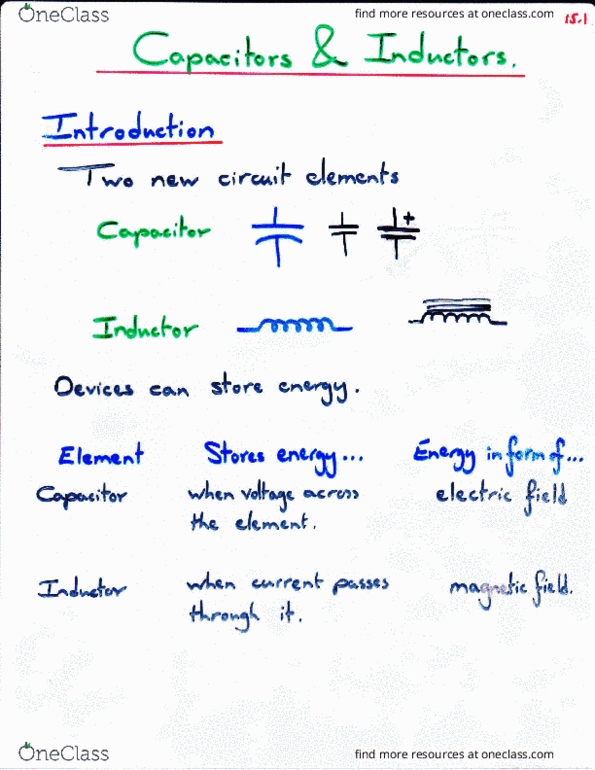 OneClass find more resources at oneclass.com 15.1
Capacitors & Inductors.
Introduction
Two new circuit elements
Capacitor +
Inductor
Devices can store energy.
Element Stores energy... Energy in form of...
Capacitor when voltage across electric field
the element.
Inductor when current passes magnetic field.
through it.
OneClass find more resources at oneclass.com